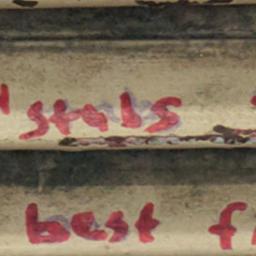 stabs
best f